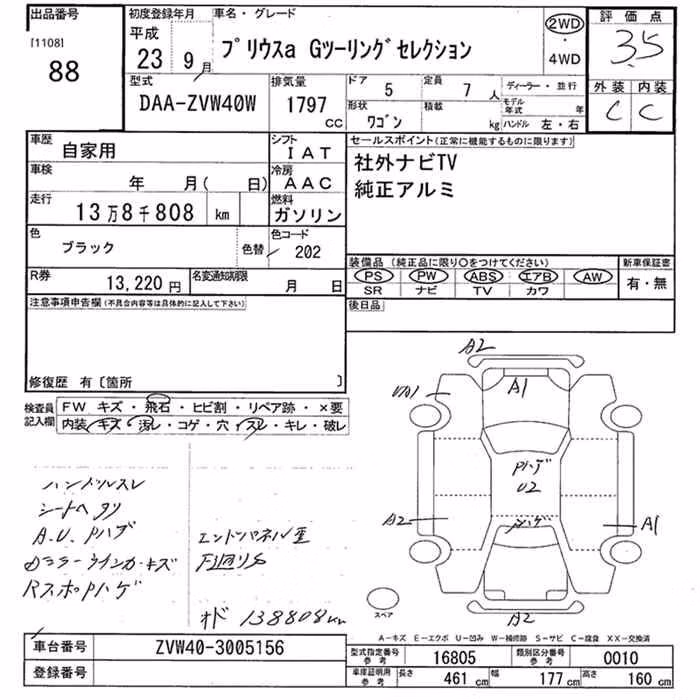 出品番号 初度登録年月 車名・グレード 評価点
[1108] 平成 2WD ・ 4WD 3.5
88 23 9月 プリウスa Gツーリングセレクション
型式 排気量 ドア 5 定員 7人 ディーラー・並行 外装 内装
DAA-ZVW40W 1797 cc 形状 ワゴン 積載 kg モデル年式 年 C C
ハンドル 左・右
車歴 自家用 シフト IAT セールスポイント(正常に機能するものに限ります)
車検 年 月( 日) 冷房 AAC 社外ナビTV
走行 13万8千808 km 燃料 ガソリン 純正アルミ
色 ブラック 色替 色コード 202
装備品(純正品に限り〇をつけてください) 新車保証書
R券 13,220円 名変通知期限 月 日 PS PW ABS エアB AW 有・無
SR ナビ TV カワ
注意事項申告欄(不具合内容等は具体的に記入して下さい) 後日品
修復歴 有〔箇所 〕
検査員 FW キズ・飛石・ヒビ割・リペア跡・×要
記入欄 内装 キズ・汚レ・コゲ・穴・スレ・キレ・破レ
A2
A1
UA1
Pハゲ
U2
ハンドルスレ
シートヘタリ A2 A1
A.U.Pハゲ エンドパネル歪
ドアミラーウインカーキズ
RスポPハゲ
オド 138808km スペア A2
A-キズ E-エクボ U-凹み W-補修跡 S-サビ C-腐食 XX-交換済
車台番号 ZVW40-3005156 型式指定番号 参考 16805 類別区分番号 参考 0010
登録番号 車庫証明用 参考 長さ 461cm 幅 177cm 高さ 160cm